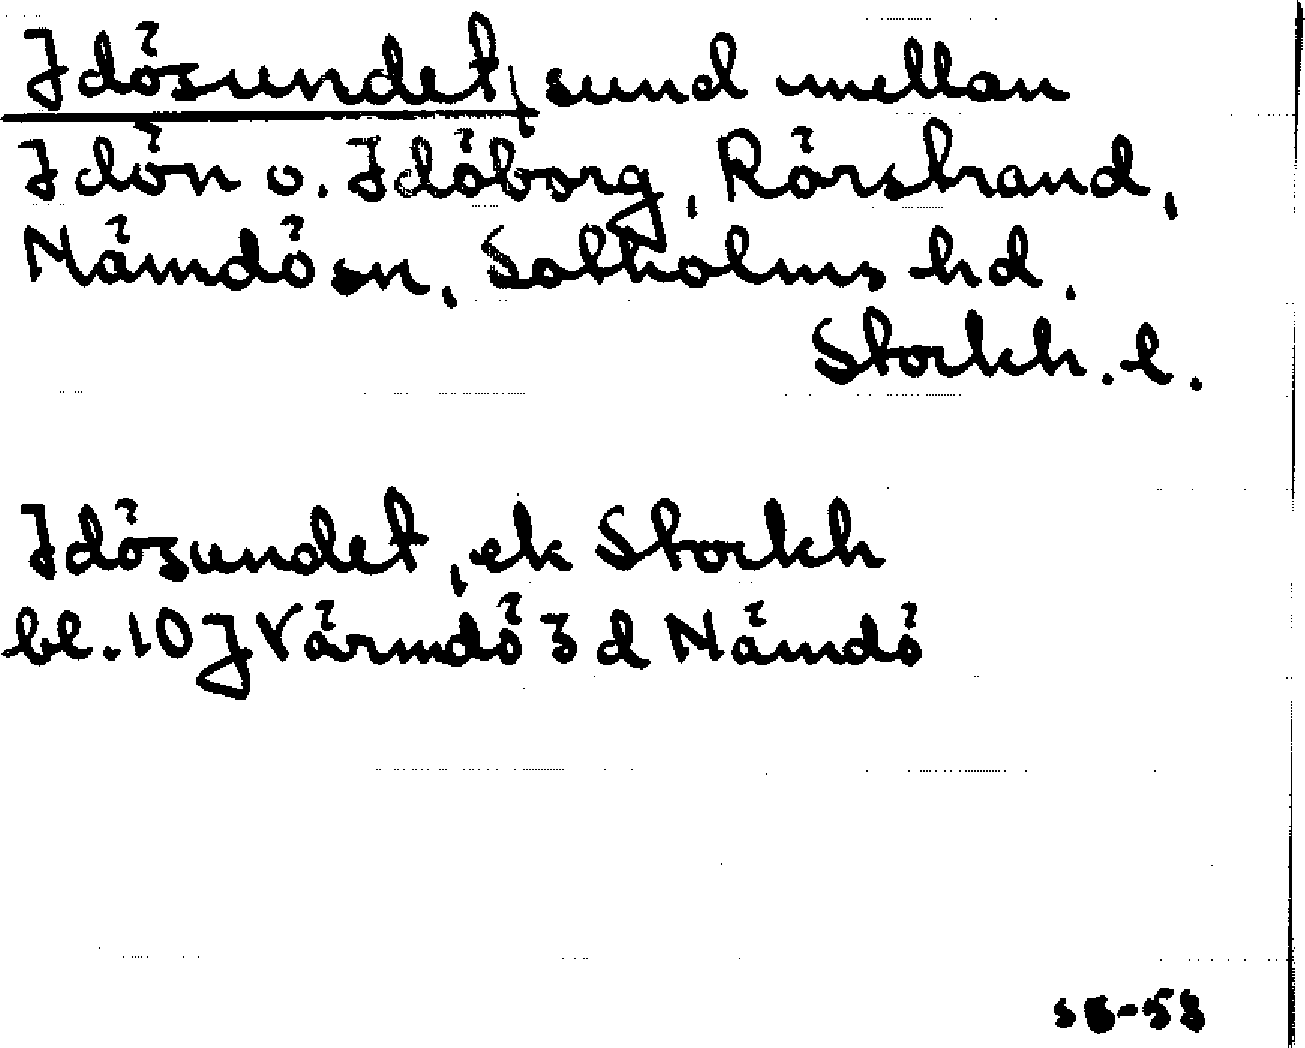 Idösundet, sund mellan
Idön o. Idöborg, Rörstrand,
Nämdö sn, Sotholms hd.
Stockh. l.
Idösundet, ek Stockh
bl. 10J Värmdö 3 d Nämdö